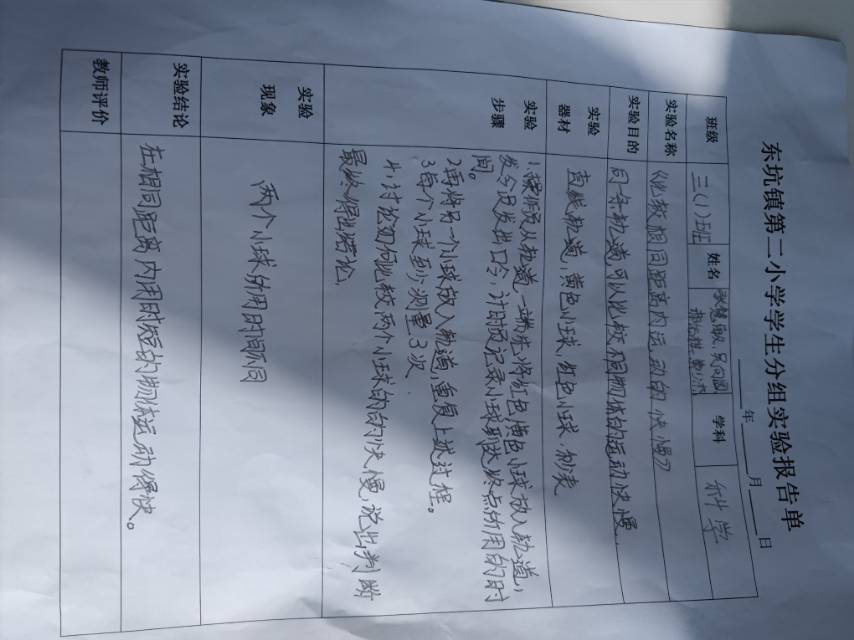 东坑镇第二小学学生分组实验报告单
年 月 日
班级 三(1)班 姓名 学科 科学
实验名称 《比较相同距离内运动的快慢》
实验目的 同一条轨道可以比较不同物体的运动快慢
实验器材 直线轨道,黄色小球,红色小球,秒表
实验步骤 1.操作员从轨道一端先将红色 小球放入轨道,
发令员发出口令,计时员记录小球到达终点所用的时
间。
2再将另一个小球放入轨道,重复上述过程。
3每个小球至少测量3次.
4.讨论如何比较两个小球的的快慢,说出判断
最终得出结论
实验现象 两个小球所用时间不同
实验结论 在相同距离内用时短的物体运动得快。
教师评价